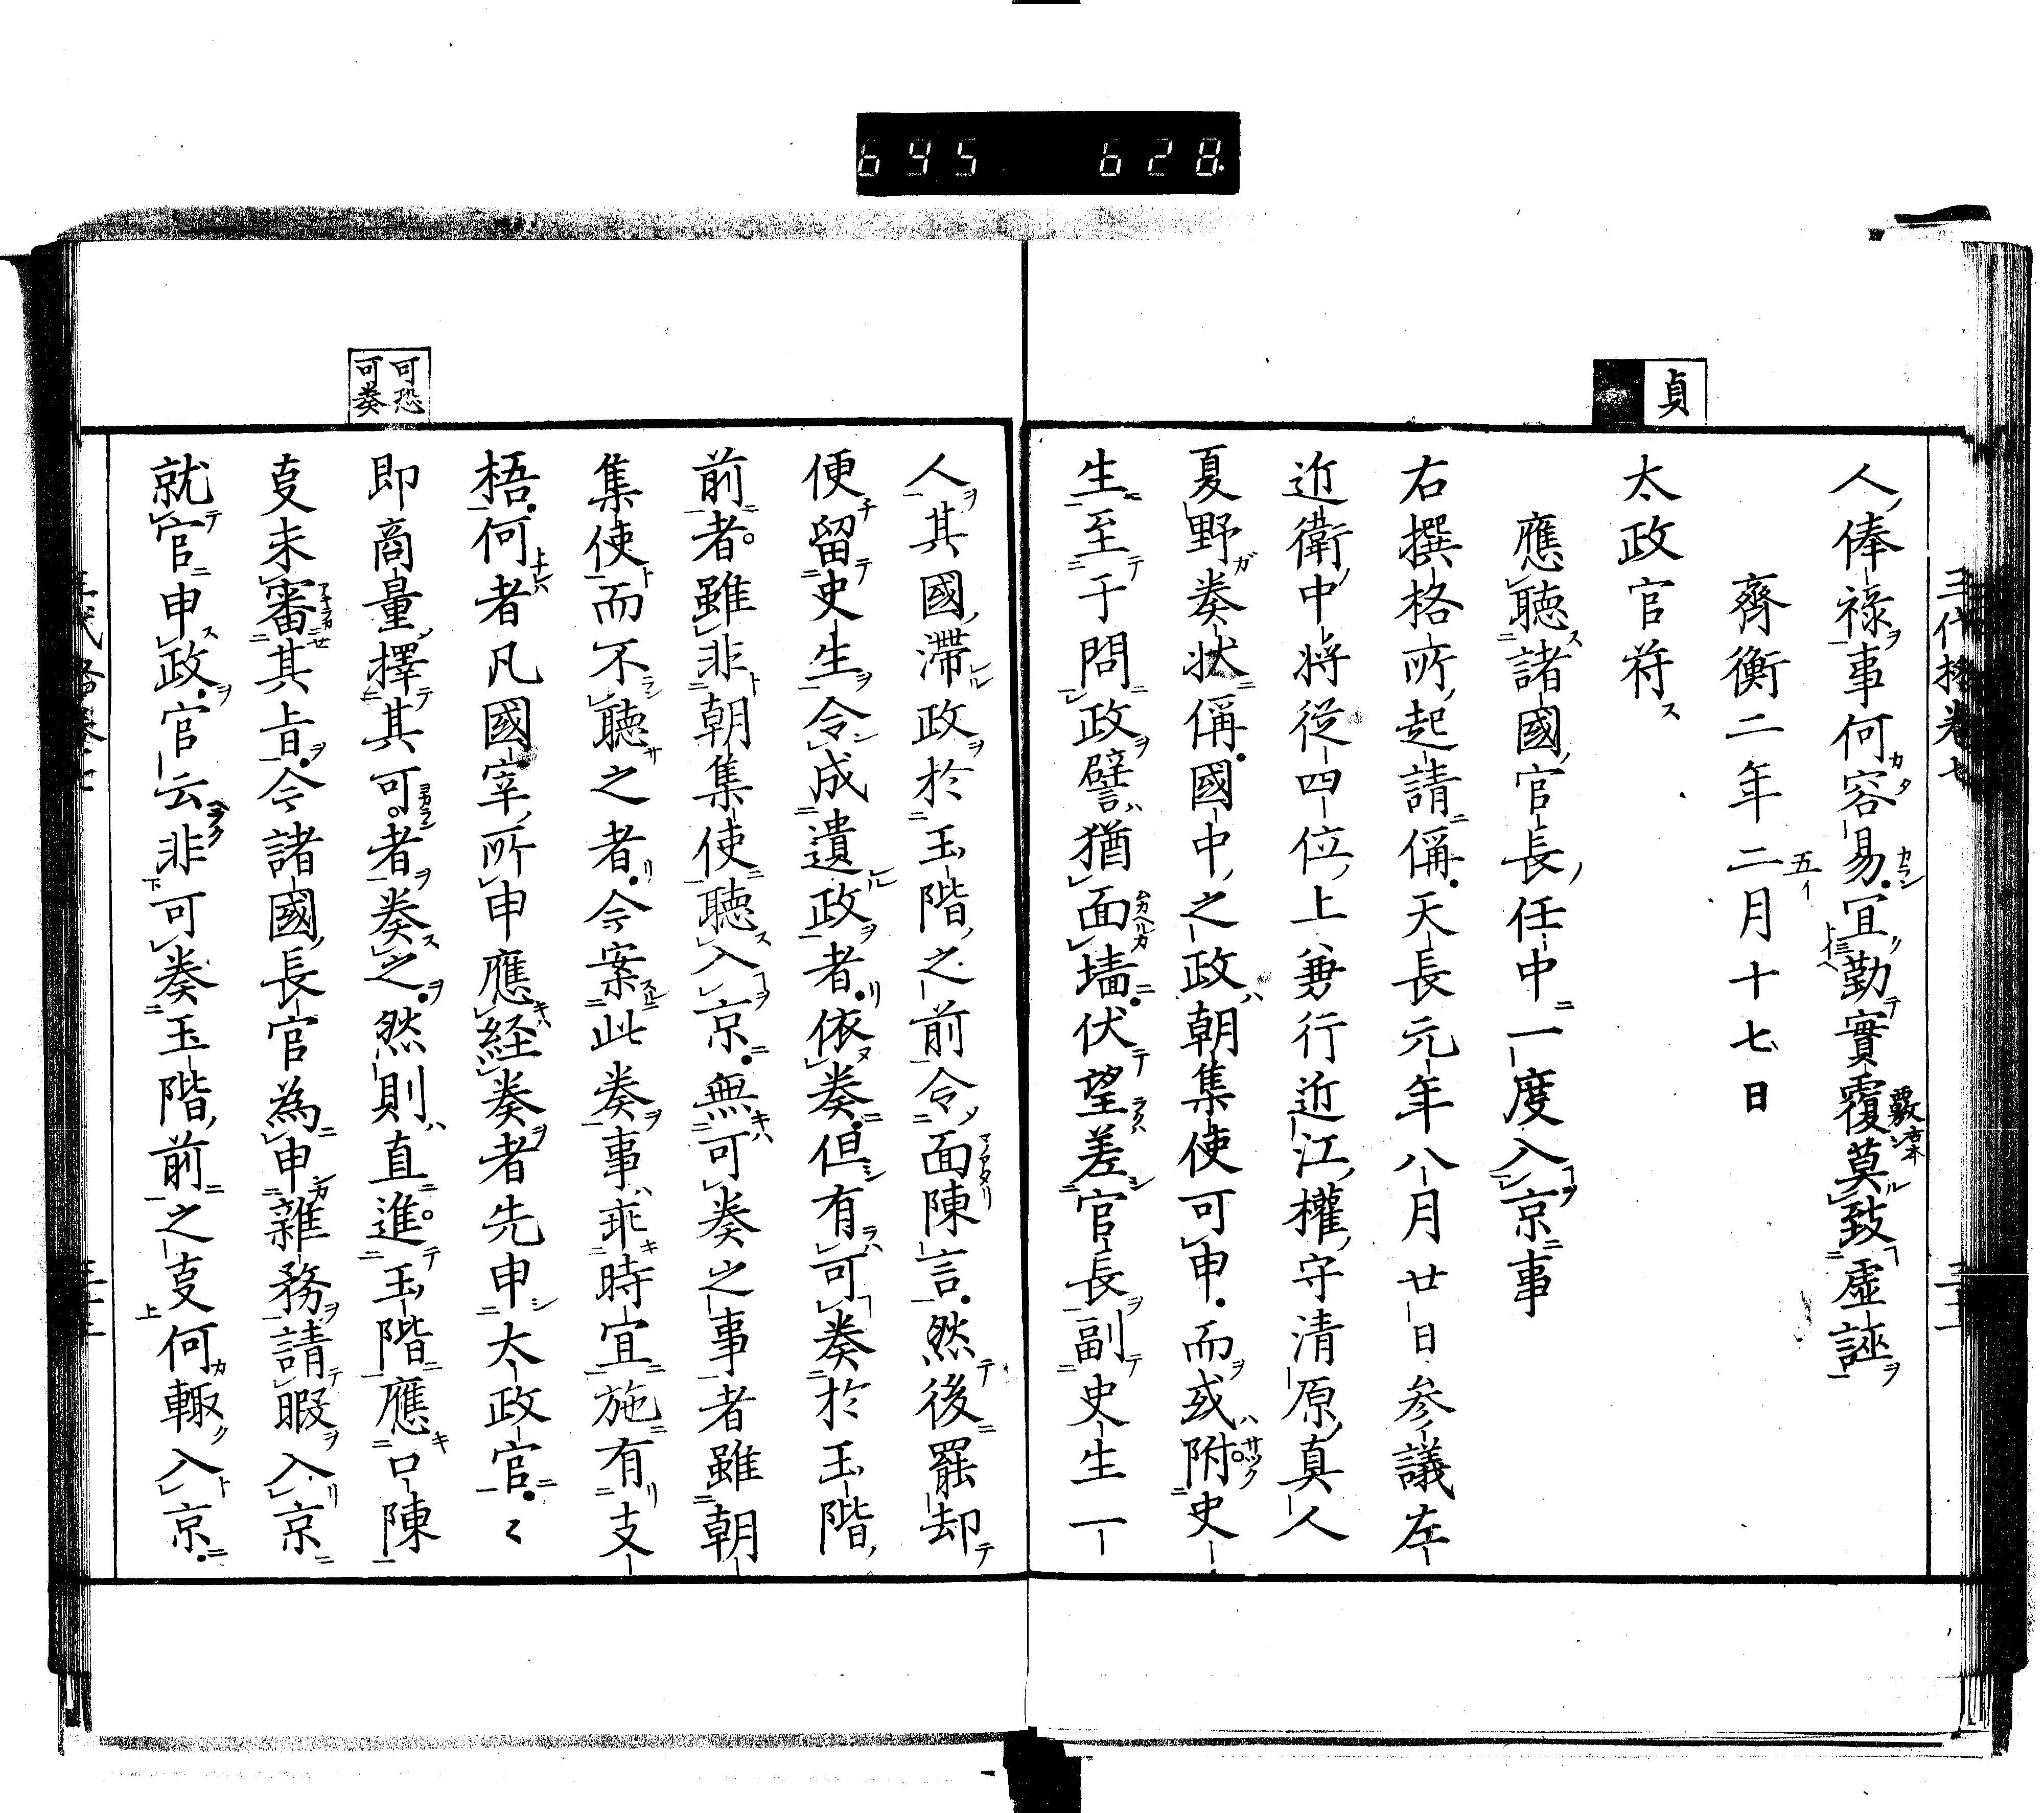 645 628
貞
三代格卷七
人俸祿事何容易冝勤實覆莫致虛誣
齊衡二年二月十七日
太政官符
應聽諸國官長任中一度入京事
右撰格所起請偁天長元年八月廿日参議左
近衛中将従四位上兼行近江權守清原真人
夏野奏状偁國中之政朝集使可申而或附史
生至于問政譬猶面墻伏望差官長副史生一
可恐
可奏
人其國滞政於玉階之前令面陳言然後罷却
便留史生令成遺政者依奏但有可奏於玉階
前者雖非朝集使聽入京無可奏之事者雖朝
集使而不聽之者今案此奏事乖時宜施有支
梧何者凡國宰所申應経奏者先申太政官〻
即商量擇其可者奏之然則直進玉階應口陳
㕝未審其旨今諸國長官為申雜務請暇入京
就官申政官云非可奏玉階前之㕝何輙入京